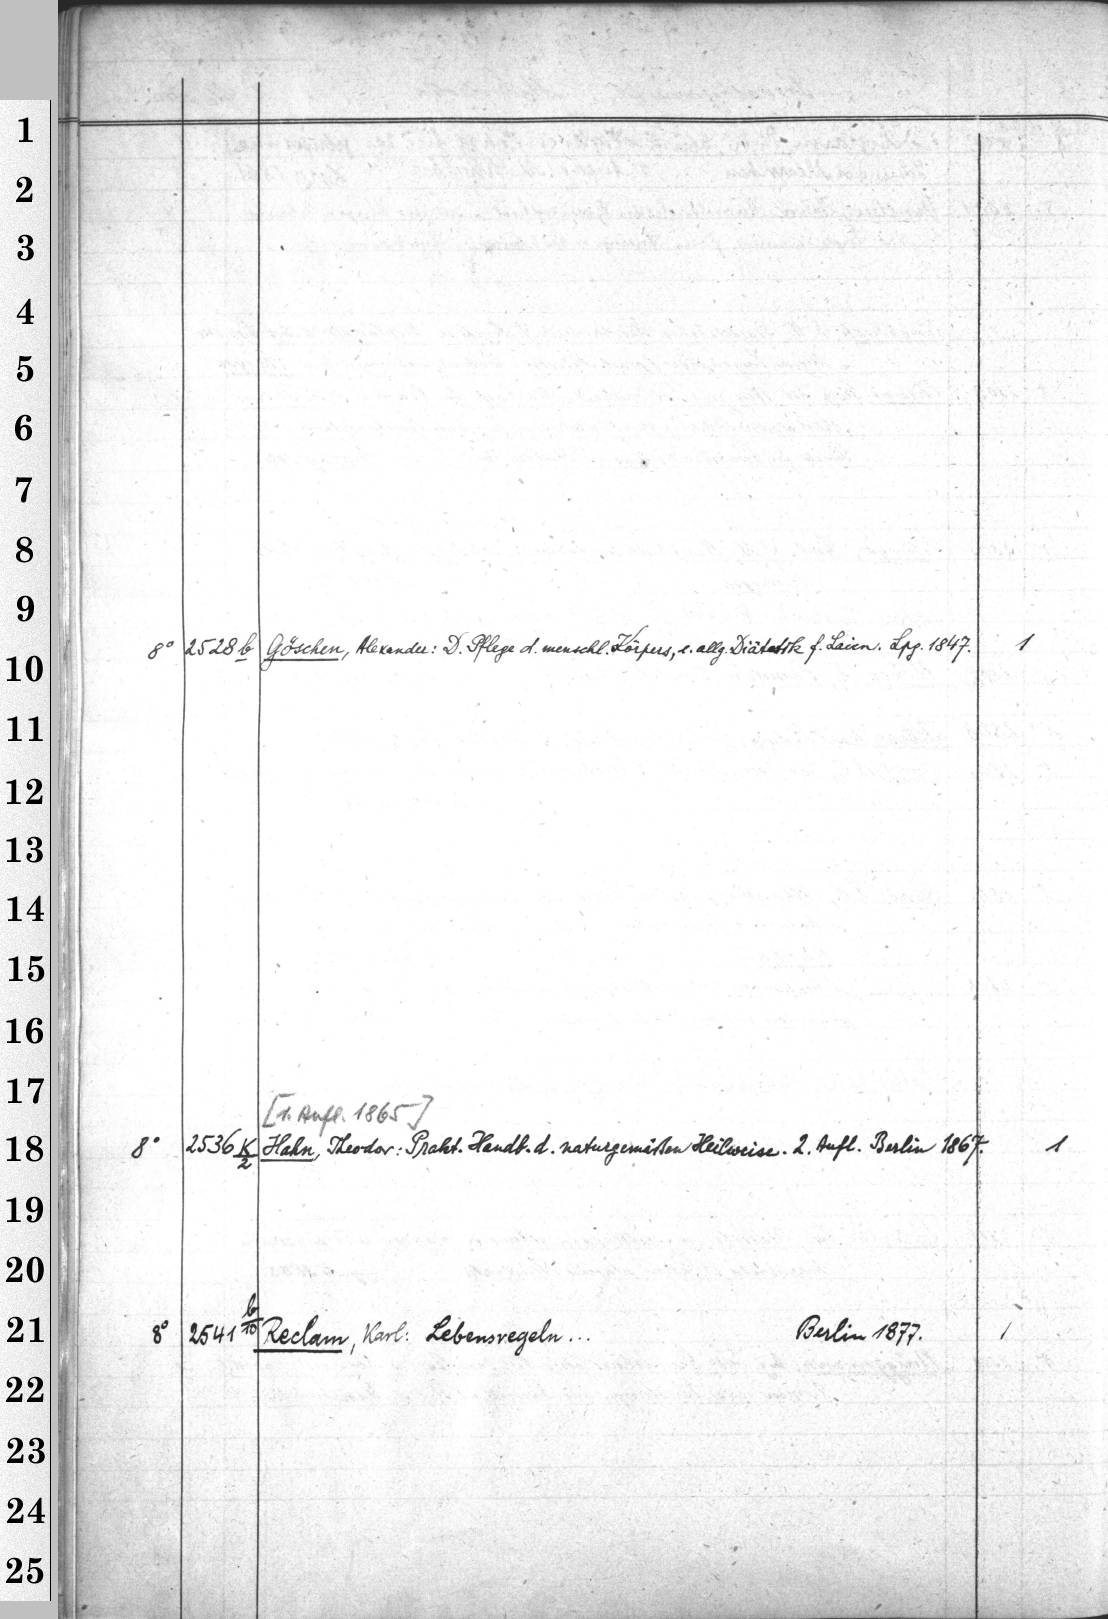 1
2
3
4
5
6
7
8
9
8° 2528 b Göschen, Alexander: D. Pflege d. menschl. Körpers, e. allg. Diätetik f. Laien. Lpg. 1847. 1
10
11
12
13
14
15
16
17
[1. Aufl. 1865]
18 8° 2536 K/2 Hahn, Theodor: Prakt. Handb. d. naturgemäßen Heilweise. 2. Aufl. Berlin 1867. 1
19
20
21 8° 2541 b/10 Reclam, Karl: Lebensregeln ... Berlin 1877. 1
22
23
24
25